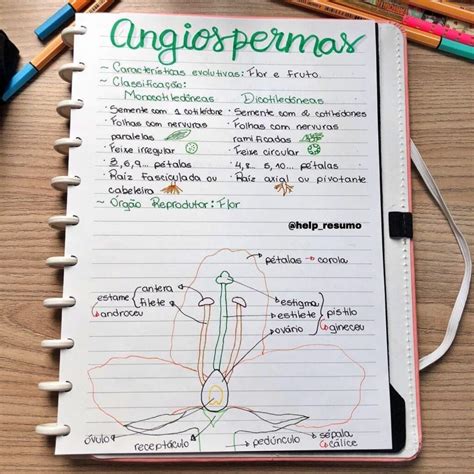 Angiospermas
~ Características evolutivas: Flor e fruto.
~ Classificação:
Monocotiledôneas Dicotiledôneas
· Semente com 1 cotilédone · Semente com 2 cotilédones
· Folhas com nervuras paralelas · Folhas com nervuras ramificadas
· Feixe irregular · Feixe circular
· 3, 6, 9... pétalas · 4, 8.. 5, 10... pétalas
· Raíz Fasciculada ou cabeleira · Raíz axial ou pivotante
~ Órgão Reprodutor: Flor
@help_resumo
pétalas → corola
antera
estame
filete
androceu
estigma
estilete
pistilo
ovário
gineceu
óvulo
receptáculo
pedúnculo
sépala
cálice